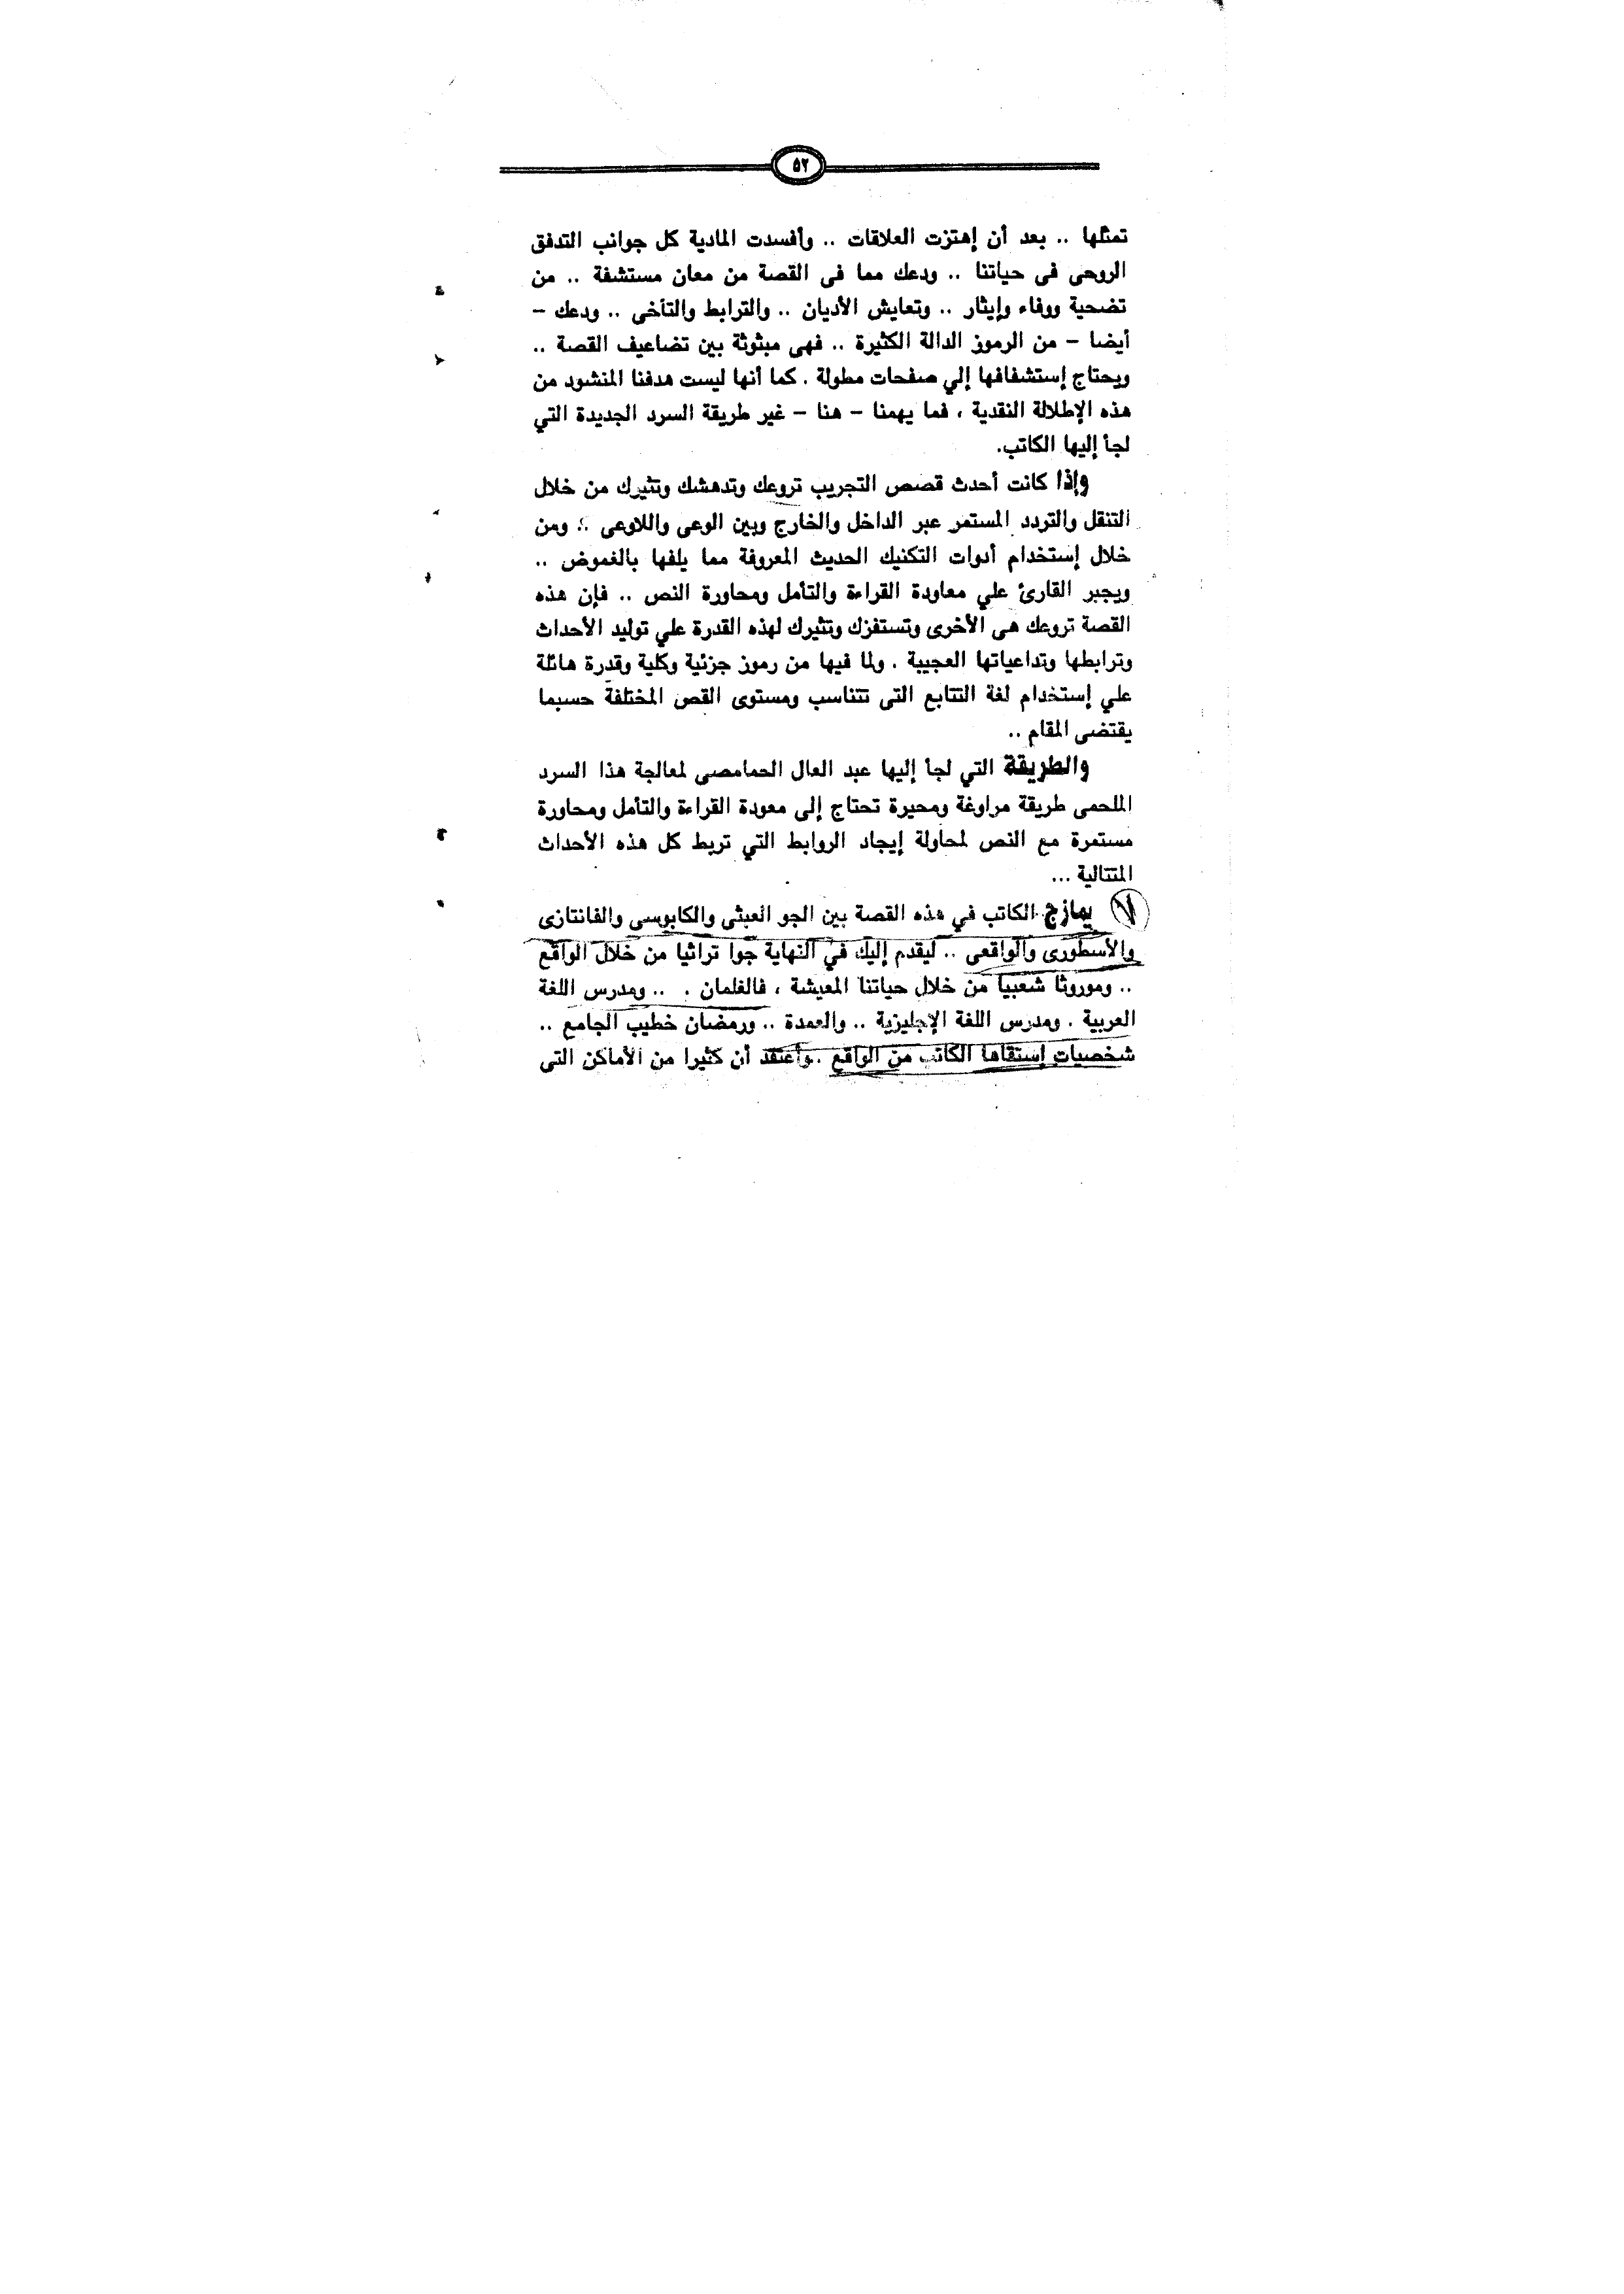 ٥٢
تمثلها .. بعد أن إهتزت العلاقات .. وأفسدت المادية كل جوانب التدفق
الروحى فى حياتنا .. ودعك مما فى القصة من معان مستشفة .. من
تضحية ووفاء وإيثار .. وتعايش الأديان .. والترابط والتأخى .. ودعك –
أيضا – من الرموز الدالة الكثيرة .. فهى مبثوثة بين تضاعيف القصة ..
ويحتاج إستشفافها إلي صفحات مطولة . كما أنها ليست هدفنا المنشود من
هذه الإطلالة النقدية ، فما يهمنا – هنا – غير طريقة السرد الجديدة التي
لجأ إليها الكاتب.
وإذا كانت أحدث قصص التجريب تروعك وتدهشك وتثيرك من خلال
التنقل والتردد المستمر عبر الداخل والخارج وبين الوعى واللاوعى .. ومن
خلال إستخدام أدوات التكنيك الحديث المعروفة مما يلفها بالغموض ..
ويجبر القارئ علي معاودة القراءة والتأمل ومحاورة النص .. فإن هذه
القصة تروعك هى الأخرى وتستفزك وتثيرك لهذه القدرة علي توليد الأحداث
وترابطها وتداعياتها العجيبة . ولما فيها من رموز جزئية وكلية وقدرة هائلة
علي إستخدام لغة التتابع التى تتناسب ومستوى القص المختلفة حسبما
يقتضى المقام ..
والطريقة التي لجأ إليها عبد العال الحمامصى لمعالجة هذا السرد
الملحمى طريقة مراوغة ومحيرة تحتاج إلى معودة القراءة والتأمل ومحاورة
مستمرة مع النص لمحاولة إيجاد الروابط التي تربط كل هذه الأحداث
المتتالية ...
يمازج الكاتب في هذه القصة بين الجو العبثى والكابوسى والفانتازى
والأسطورى والواقعى .. ليقدم إليك في النهاية جوا تراثيا من خلال الواقع
.. وموروثا شعبيا من خلال حياتنا المعيشة ، فالغلمان . .. ومدرس اللغة
العربية . ومدرس اللغة الإجليزية .. والعمدة .. ورمضان خطيب الجامع ..
شخصيات إستقاها الكاتب من الواقع . وأعتقد أن كثيرا من الأماكن التى